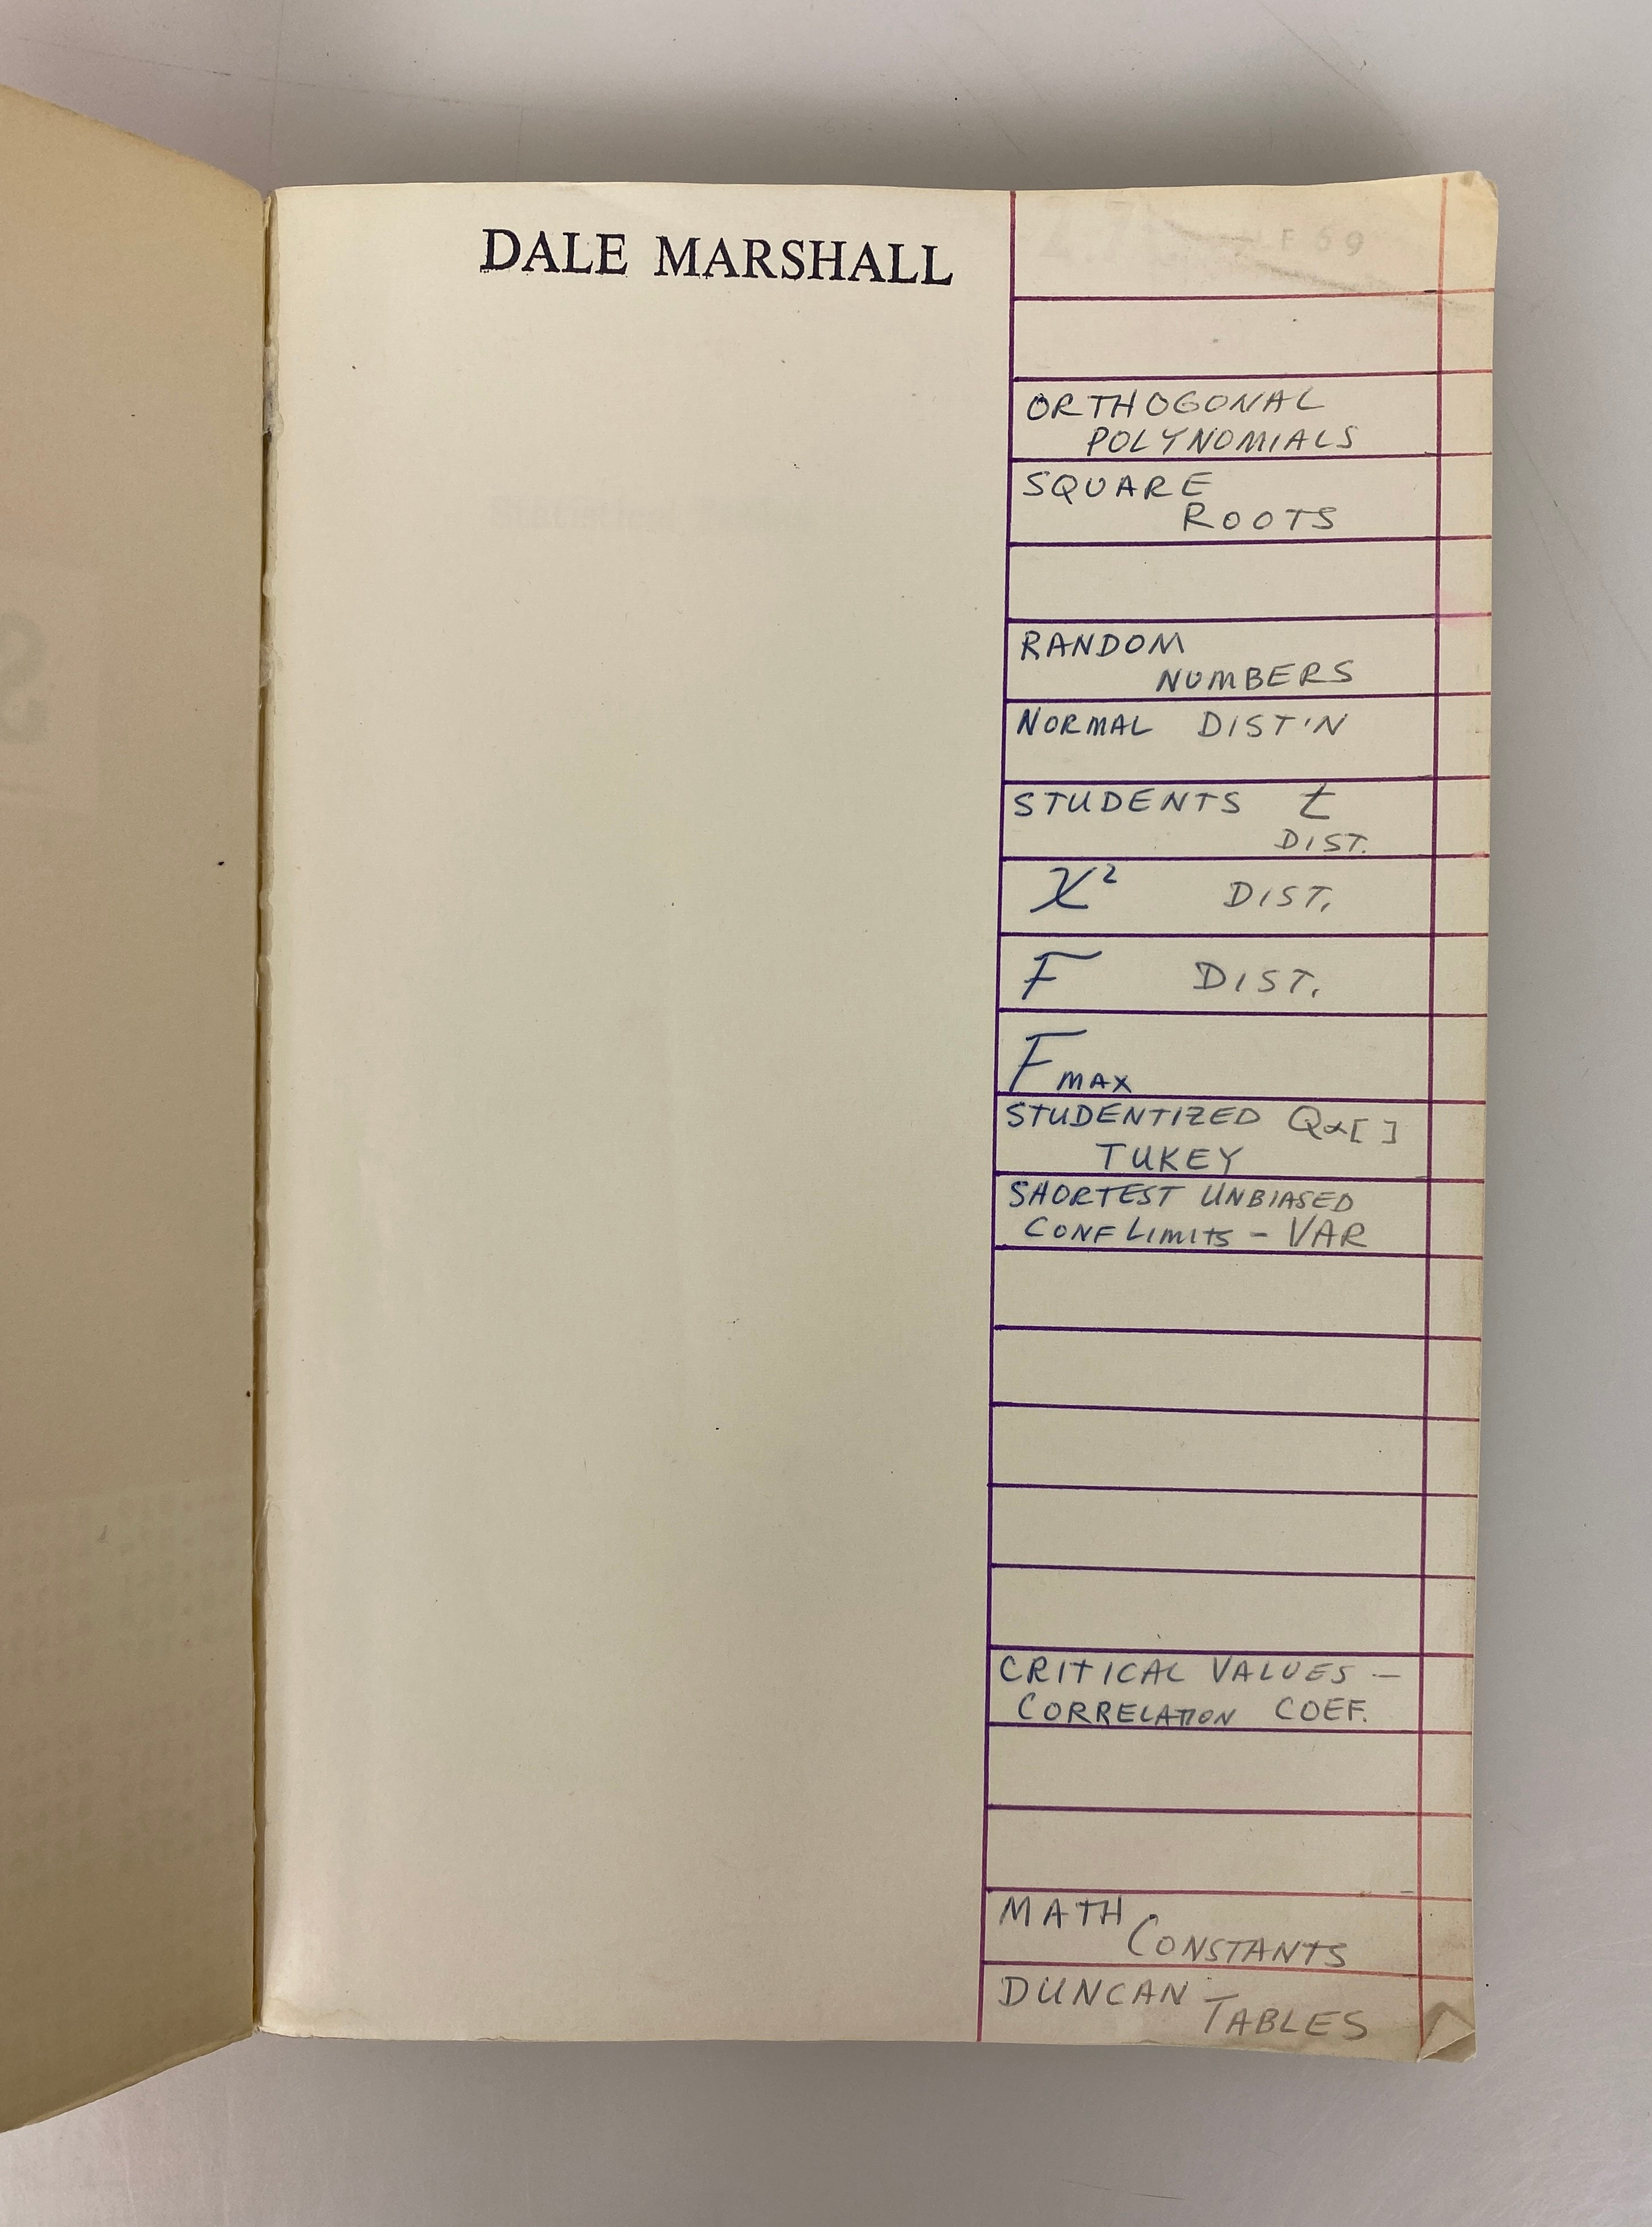 DALE MARSHALL
F 69
ORTHOGONAL
POLYNOMIALS
SQUARE
ROOTS
RANDOM
NUMBERS
NORMAL DIST'N
STUDENTS t
DIST.
χ² DIST.
F DIST.
F MAX
STUDENTIZED Qα[ ]
TUKEY
SHORTEST UNBIASED
CONF LIMITS - VAR
CRITICAL VALUES -
CORRELATION COEF.
MATH
CONSTANTS
DUNCAN
TABLES